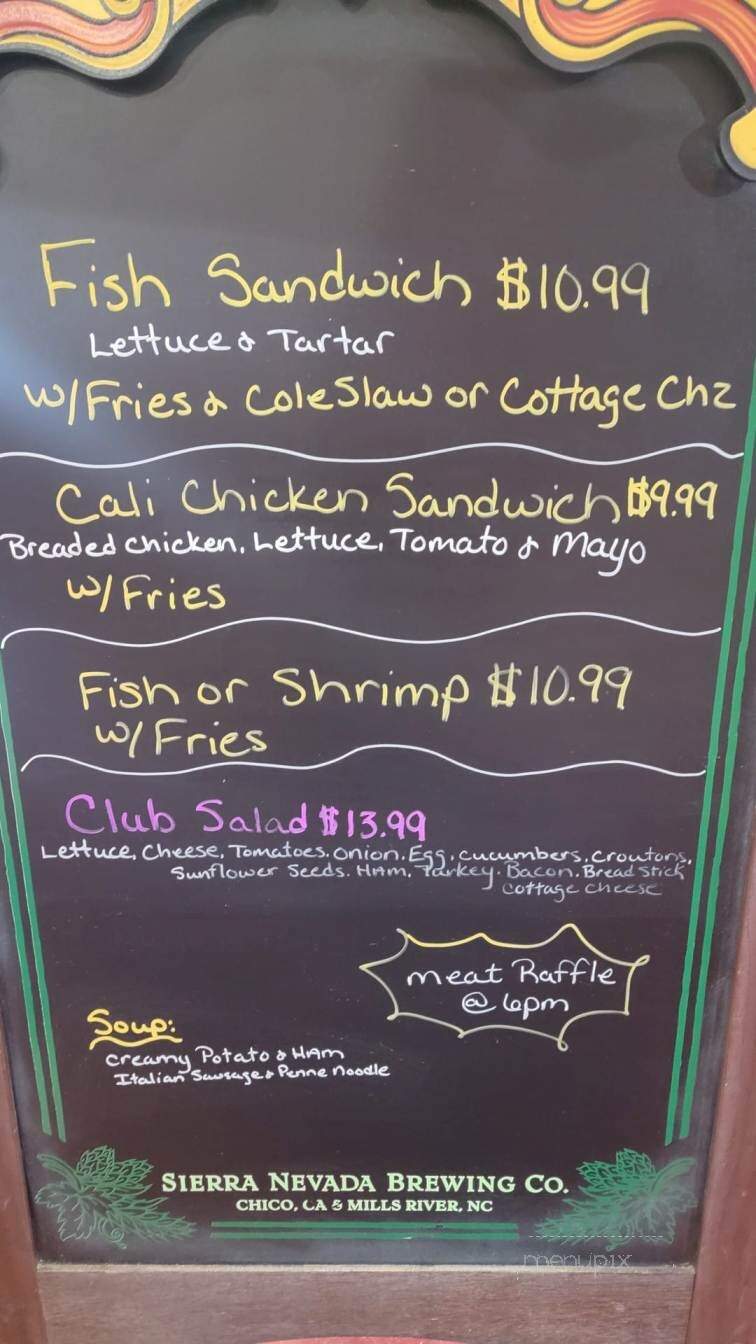 Fish Sandwich $10.99
Lettuce & Tartar
w/Fries & ColeSlaw or Cottage Chz
Cali Chicken Sandwich $9.99
Breaded chicken, Lettuce, Tomato & Mayo
w/Fries
Fish or Shrimp $10.99
w/Fries
Club Salad $13.99
Lettuce, Cheese, Tomatoes, Onion, Egg, cucumbers, croutons,
Sunflower Seeds, HAm, Turkey, Bacon, Bread Stick
cottage cheese
meat Raffle
@ 6pm
Soup:
creamy Potato & HAm
Italian Sausage & Penne noodle
SIERRA NEVADA BREWING CO.
CHICO, CA & MILLS RIVER, NC
menupix